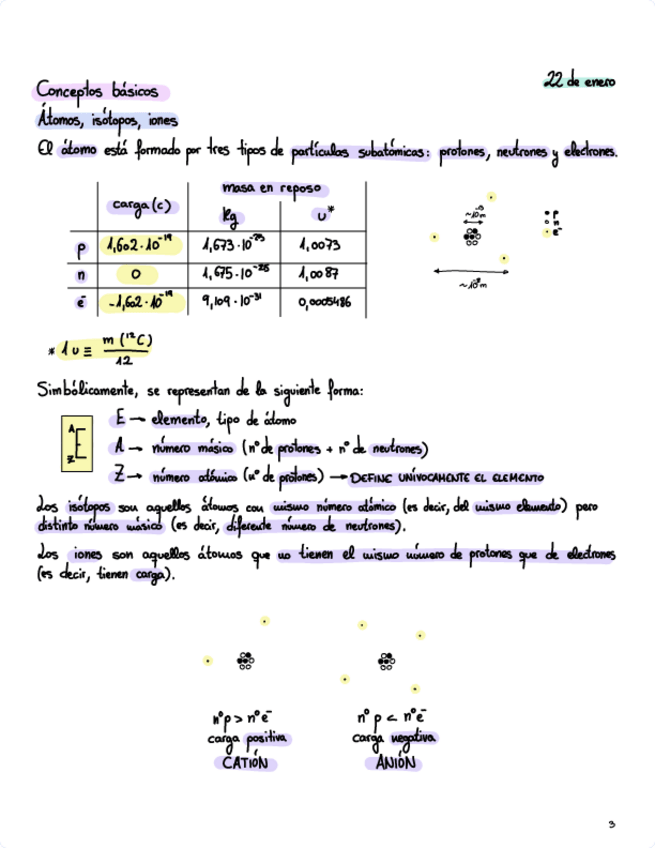 22 de enero
Conceptos básicos
Átomos, isótopos, iones
El átomo está formado por tres tipos de partículas subatómicas: protones, neutrones y electrones.
carga (c) masa en reposo
kg u*
p 1,602·10⁻¹⁹ 1,0073
n 0 1,0087
e⁻ -1,602·10⁻¹⁹ 9,109·10⁻³¹ 0,0005486
p
n
e⁻
* 1 u ≡ m (¹²C)
12
Simbólicamente, se representan de la siguiente forma:
A E Z
E → elemento, tipo de átomo
A → número másico (nº de protones + nº de neutrones)
Z → número atómico (nº de protones) → DEFINE UNÍVOCAMENTE EL ELEMENTO
Los isótopos son aquellos átomos con mismo número atómico (es decir, del mismo elemento) pero
distinto número másico (es decir, diferente número de neutrones).
Los iones son aquellos átomos que no tienen el mismo número de protones que de electrones
(es decir, tienen carga).
nºp > nºe⁻
carga positiva
CATIÓN
nº p < nºe⁻
carga negativa
ANIÓN
3